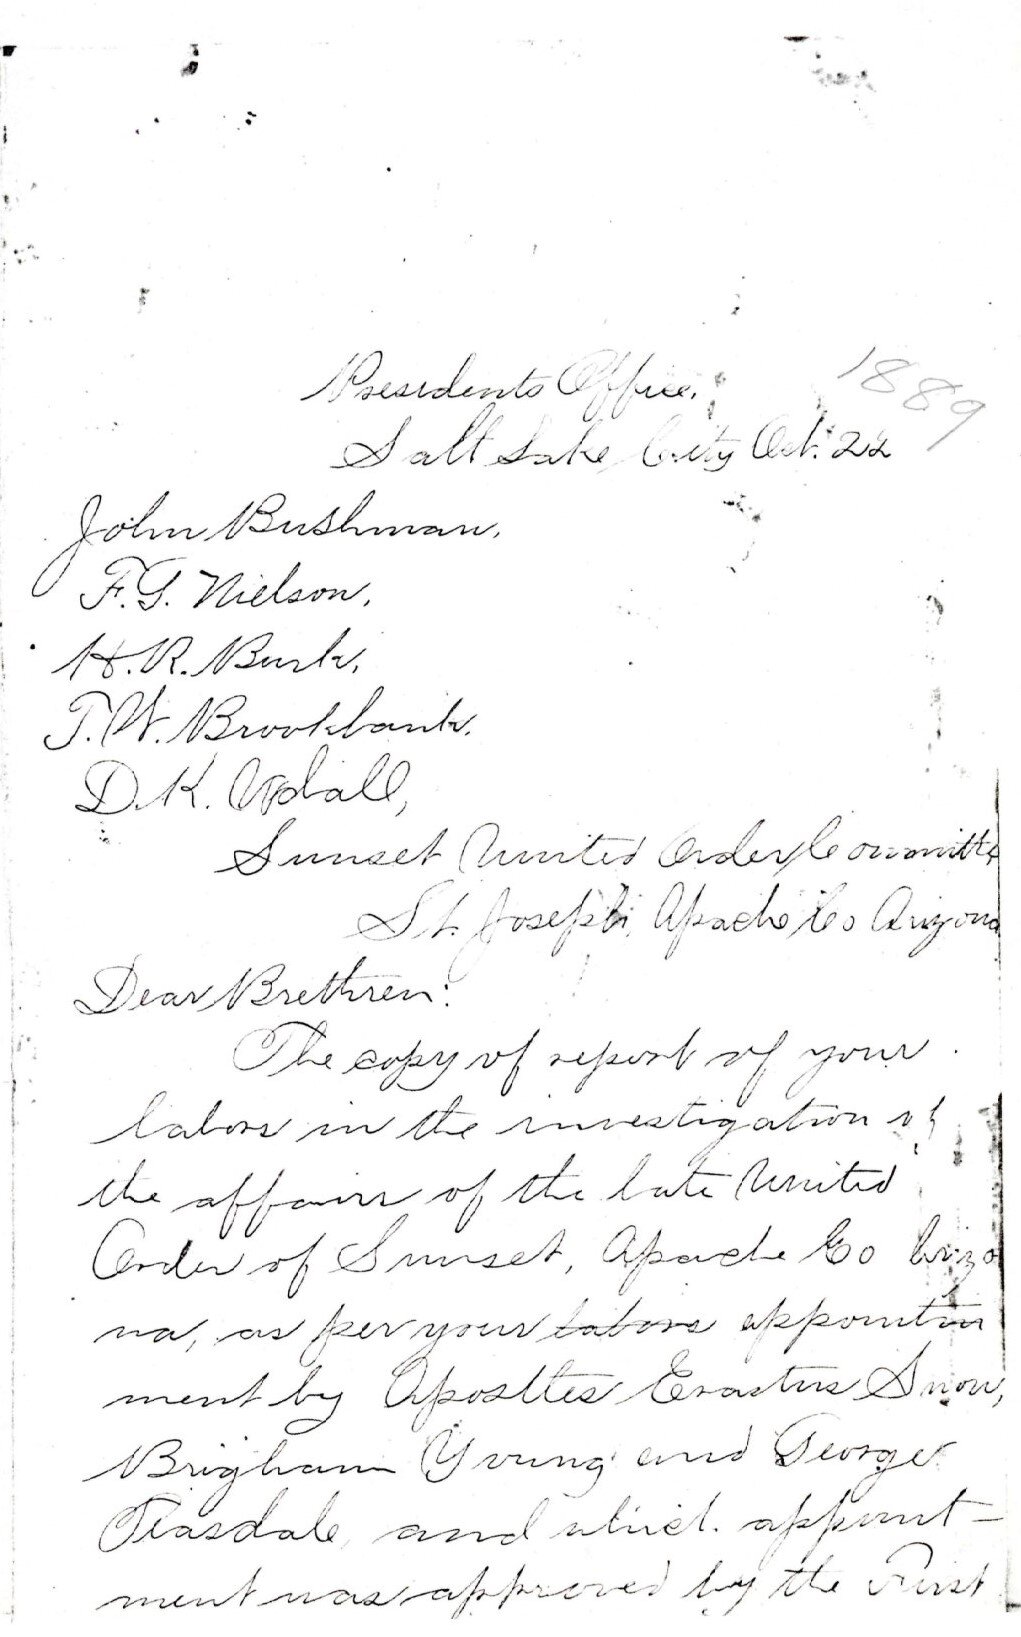 Presidents Office.
1889
Salt Lake City Oct. 22
John Bushman,
F.G. Nielson,
H.R. Burk,
T.W. Brookbank,
D.K. Udall,
Sunset United Order Committe
St. Joseph, Apache Co Arizona
Dear Brethren:
The copy of report of your
labors in the investigation of
the affairs of the late United
Order of Sunset, Apache Co Arizo
na, as per your labors appoint
ment by Aposltes Erastus Snow,
Brigham Young and George
Teasdale, and which appoint-
ment was approved by the First